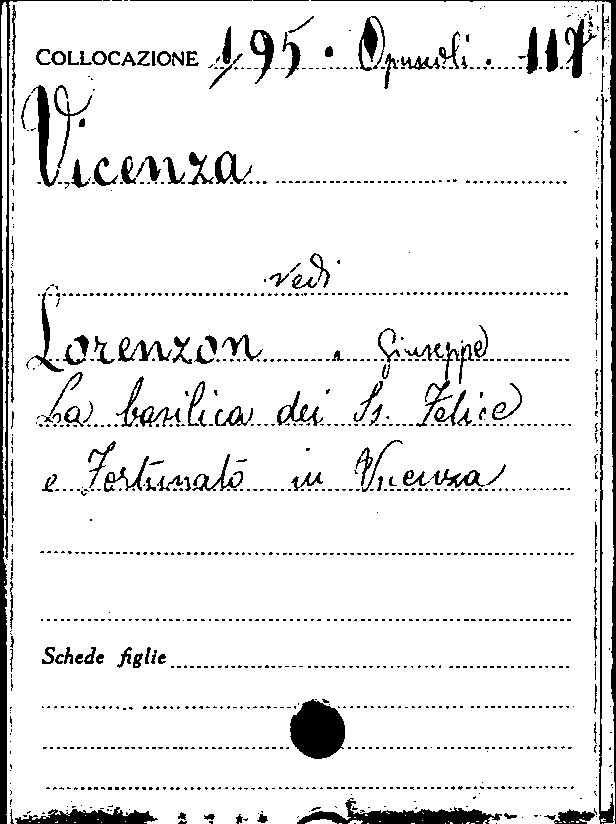 COLLOCAZIONE 195 · Opuscoli · 117
Vicenza
vedi
Lorenzon . Giuseppe
La basilica dei Ss. Felice
e Fortunato in Vicenza
Schede figlie